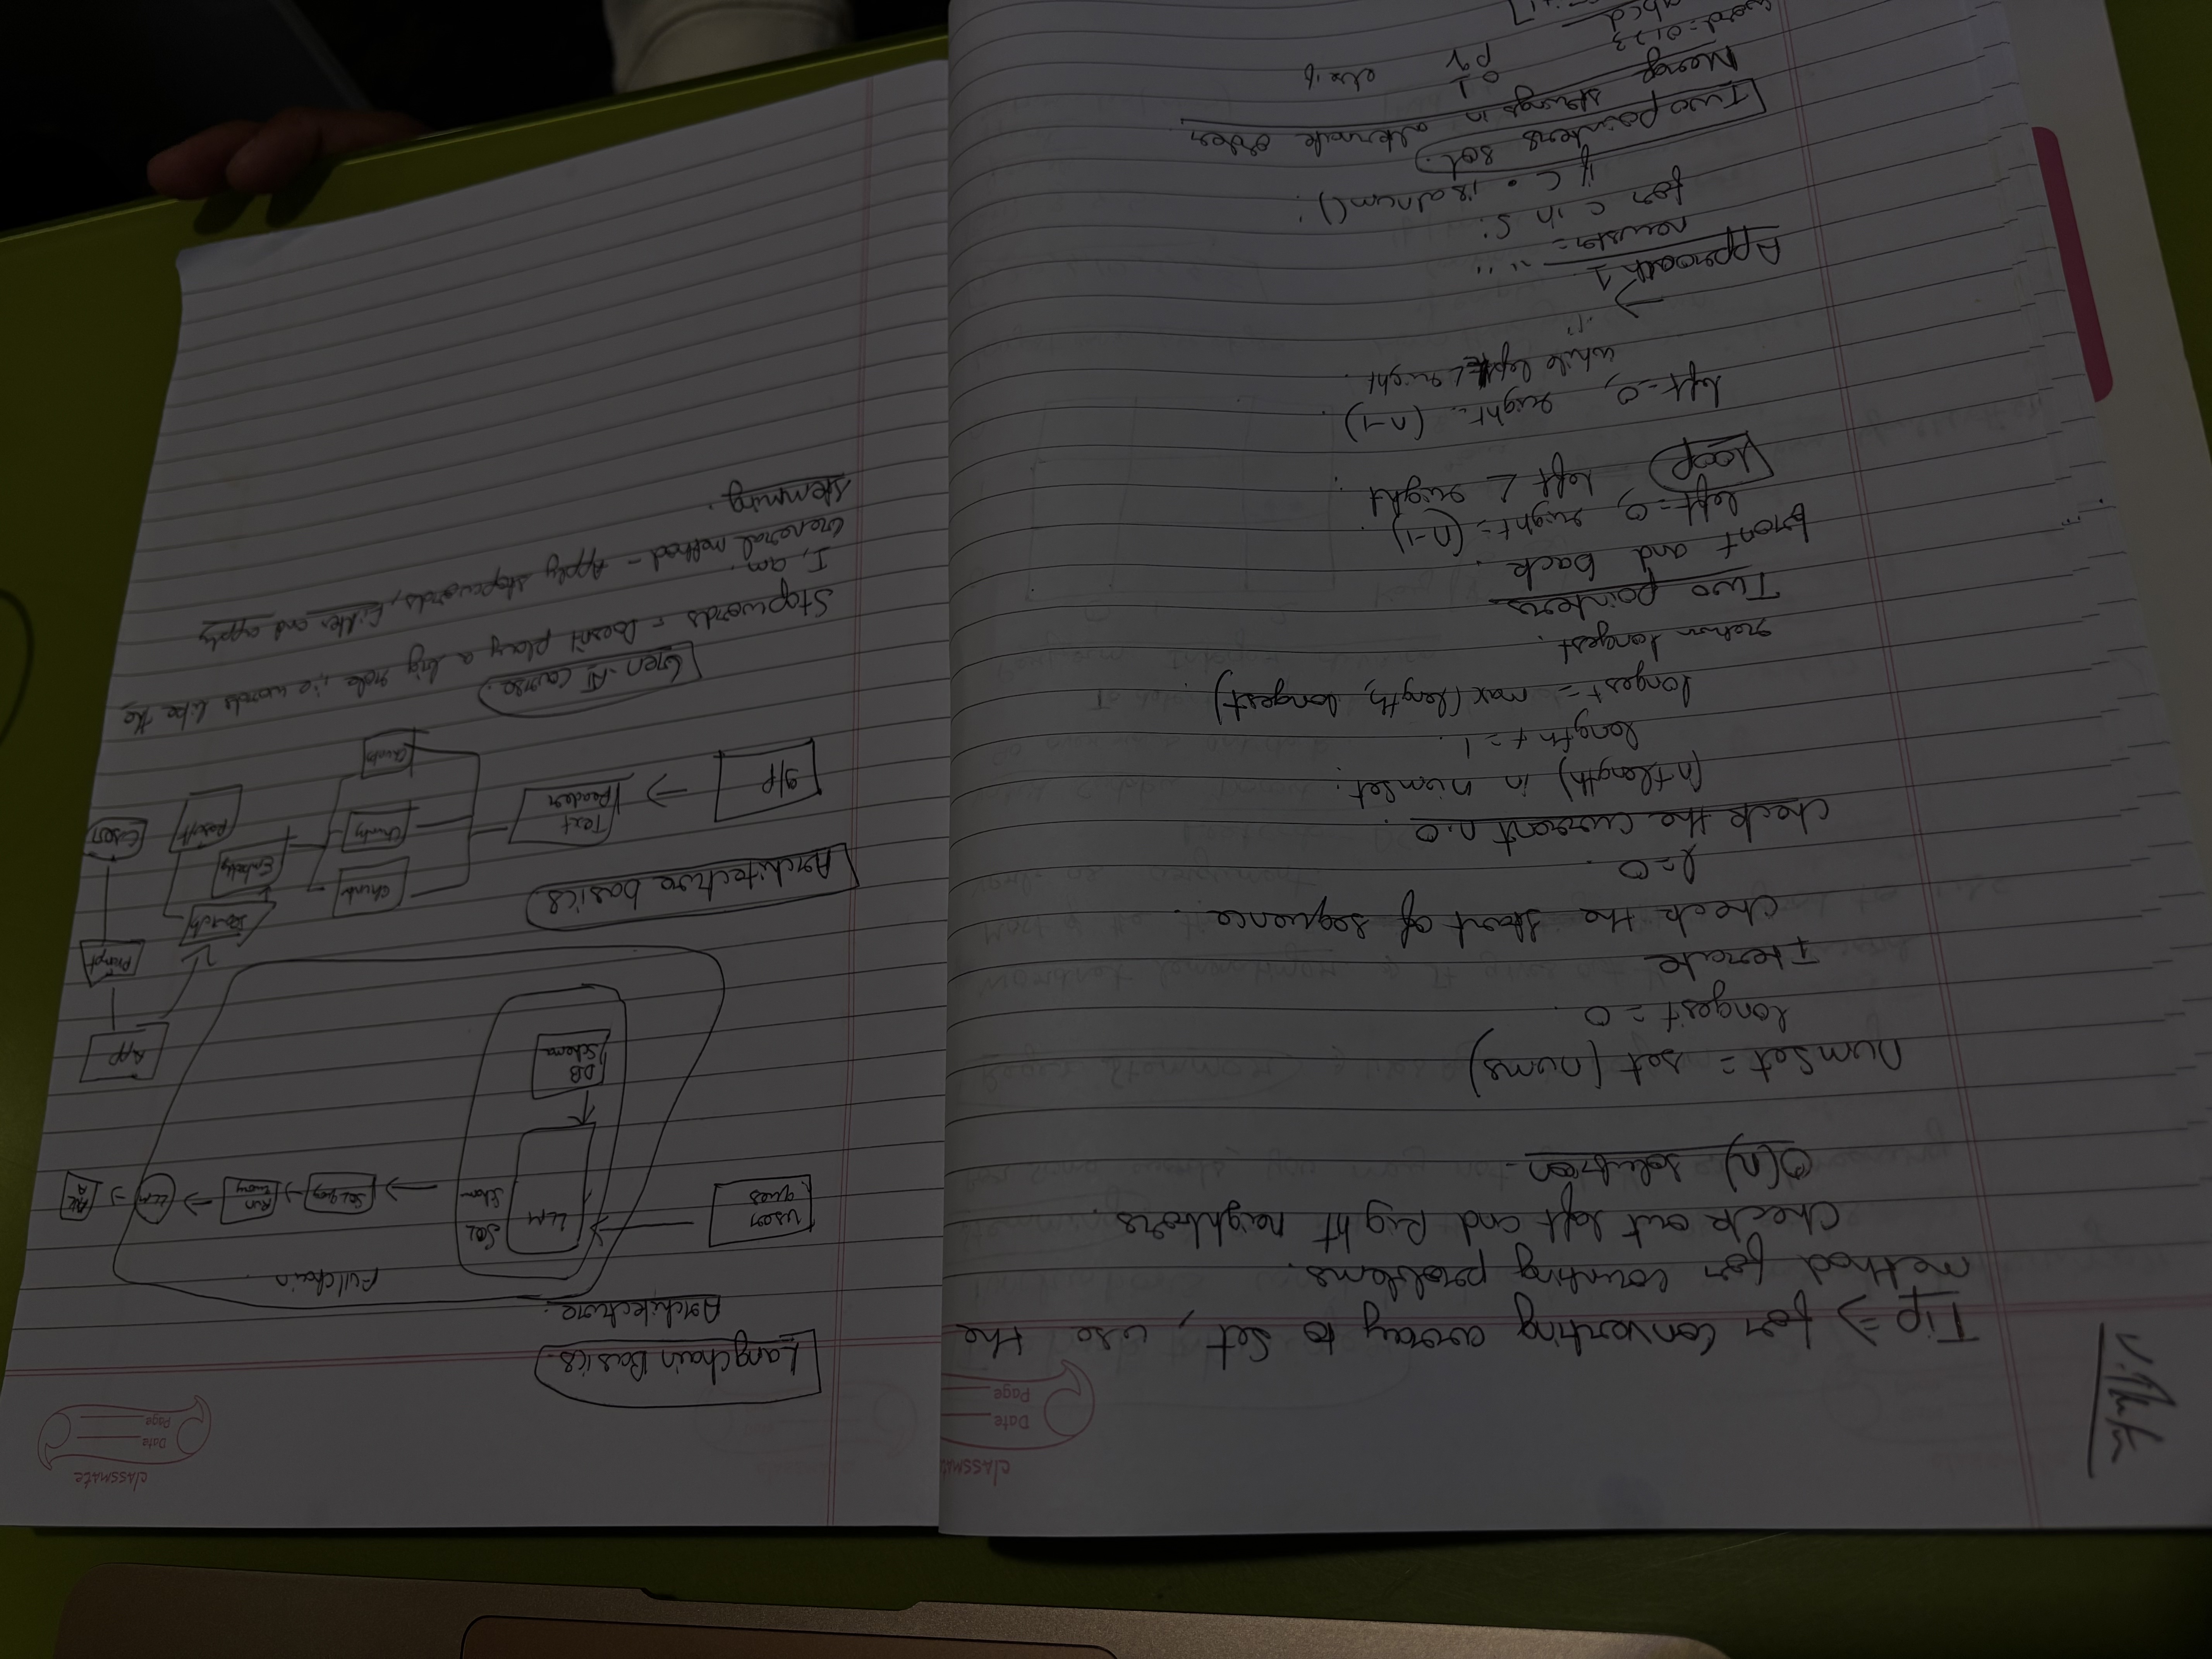 classmate
Date
Page
Tip => for converting array to Set, use the
method for counting problems.
Check out left and Right neighbors.
O(n) solution.
numSet = set(nums)
longest = 0
Iterate
check the start of sequence.
l=0
check the current n.o
(n+length) in numset:
length += 1
longest = max(length, longest)
return longest.
Two pointers.
front and back.
left = 0, right = (n-1)
Loop left < right
left = 0, right = (n-1)
while left < right
Approach 1
newstr = " "
for c in S:
if c.isalnum():
Two pointers sol.
Merge strings in alternate order
word = 0123
abcd
pq
else if
classmate
Date
Page
Langchain Basics.
Architecture.
Fullchain
User ques
LLM
SQL
DB Schema
SQL query
Run query
LLM
Architecture basics
I/P => Text Reader
Chunks
Chunks
Chunks
Search
Result
App
Prompt
User
Gen-AI Course
Stopwords = Doesn't play a big role, i.e words like the,
I, am.
General method - Apply stopwords, filter and apply
stemming.